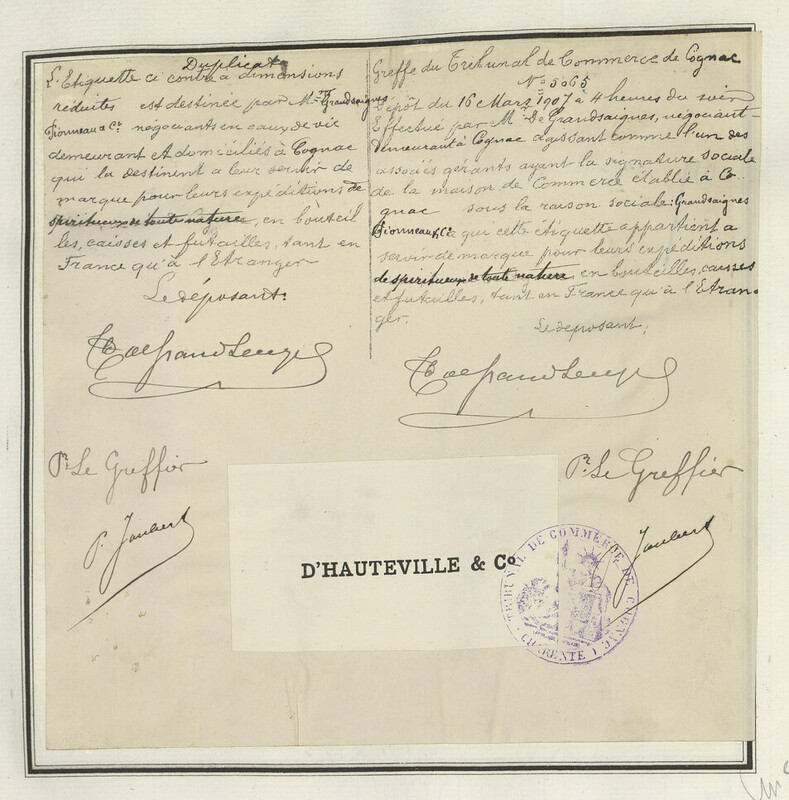 Duplicata
L'Etiquette ci contre a dimensions
réduites est destinée par Mrs Grandsaignes
Fionneau & Cie négociants en eaux de vie
demeurant et domiciliés à Cognac
qui la destinent a leur servir de
marque pour leurs expéditions de
spiritueux de toute nature, en bouteil
les, caisses et futailles, tant en
France qu'à l'Etranger
Le déposant:
Greffe du Tribunal de Commerce de Cognac
No 5065
Dépôt du 16 Mars 1907 à 4 heures du soir
Effectué par Mr De Grandsaignes, négociant
demeurant à Cognac agissant comme l'un des
associés gérants ayant la signature sociale
de la maison de Commerce établie à Co
gnac sous la raison sociale: Grandsaignes
Fionneau & Cie a qui cette étiquette appartient a
servir de marque pour leurs expéditions
de spiritueux de toute nature, en bouteilles, caisses
et futailles, tant en France qu'à l'Etran-
ger.
Le déposant,
Pr Le Greffier
P. Joubert
Pr Le Greffier
Joubert
D'HAUTEVILLE & Co
TRIBUNAL DE COMMERCE DE COGNAC
CHARENTE